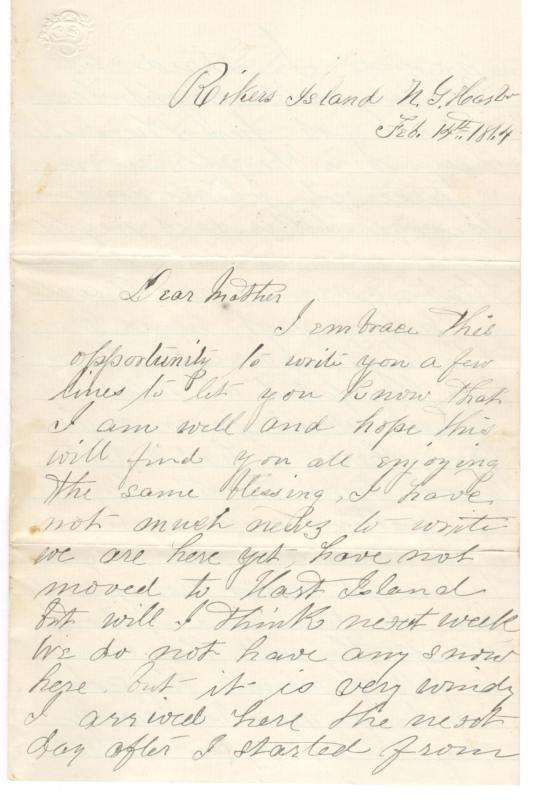 Rikers Island N.Y. Harbr
Feb. 14th. 1864
Dear Mother
I embrace this
opportunity to write you a few
lines to let you know that
I am well and hope this
will find you all enjoying
the same blessing, I have
not much newz to write
we are here yet, have not
moved to Hart Island
but will I think next week
We do not have any snow
here. but it is very windy
I arrived here the next
day after I started from